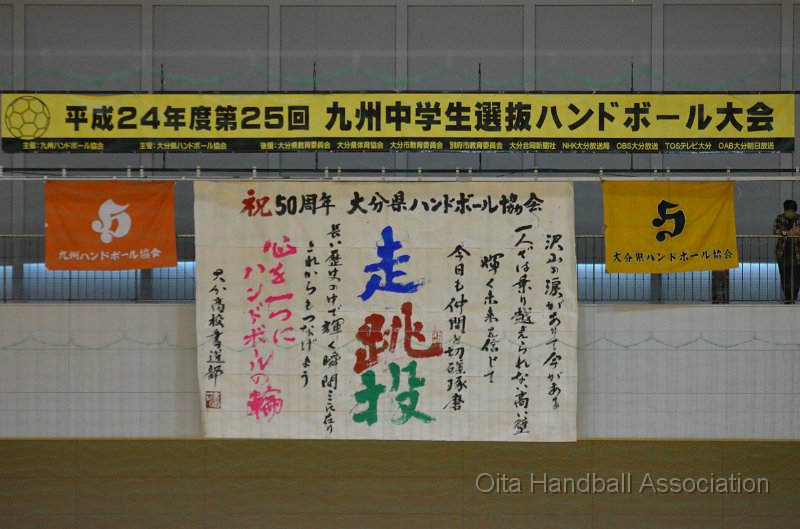 平成24年度第25回 九州中学生選抜ハンドボール大会
主催：九州ハンドボール協会 主管：大分県ハンドボール協会 後援：大分県教育委員会 大分県体育協会 大分市教育委員会 別府市教育委員会 大分合同新聞社 NHK大分放送局 OBS大分放送 TOSテレビ大分 OAB大分朝日放送
九州ハンドボール協会
祝50周年 大分県ハンドボール協会
沢山の涙があって今がある
一人では乗り越えられない高い壁
輝く未来を信じて
今日も仲間と切磋琢磨
走跳投
長い歴史の中で輝く瞬間ここに在り
これからもつなげよう
心を一つに
ハンドボールの輪
高校書道部
大分県ハンドボール協会
Oita Handball Association